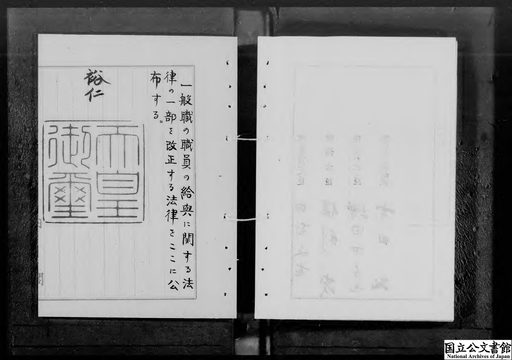 一般職の職員の給与に関する法
律の一部を改正する法律をここに公
布する。
裕仁
天皇
御璽
国立公文書館
National Archives of Japan